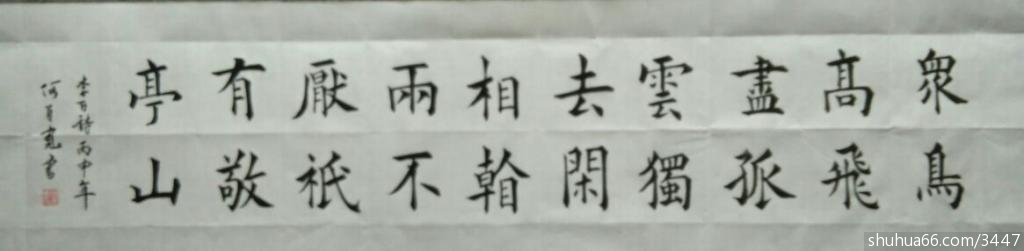 衆鳥
髙飛
盡孤
雲獨
去閑
相看
兩不
厭祇
有敬
亭山
李白詩丙申年
何書
shuhua66.com/3447